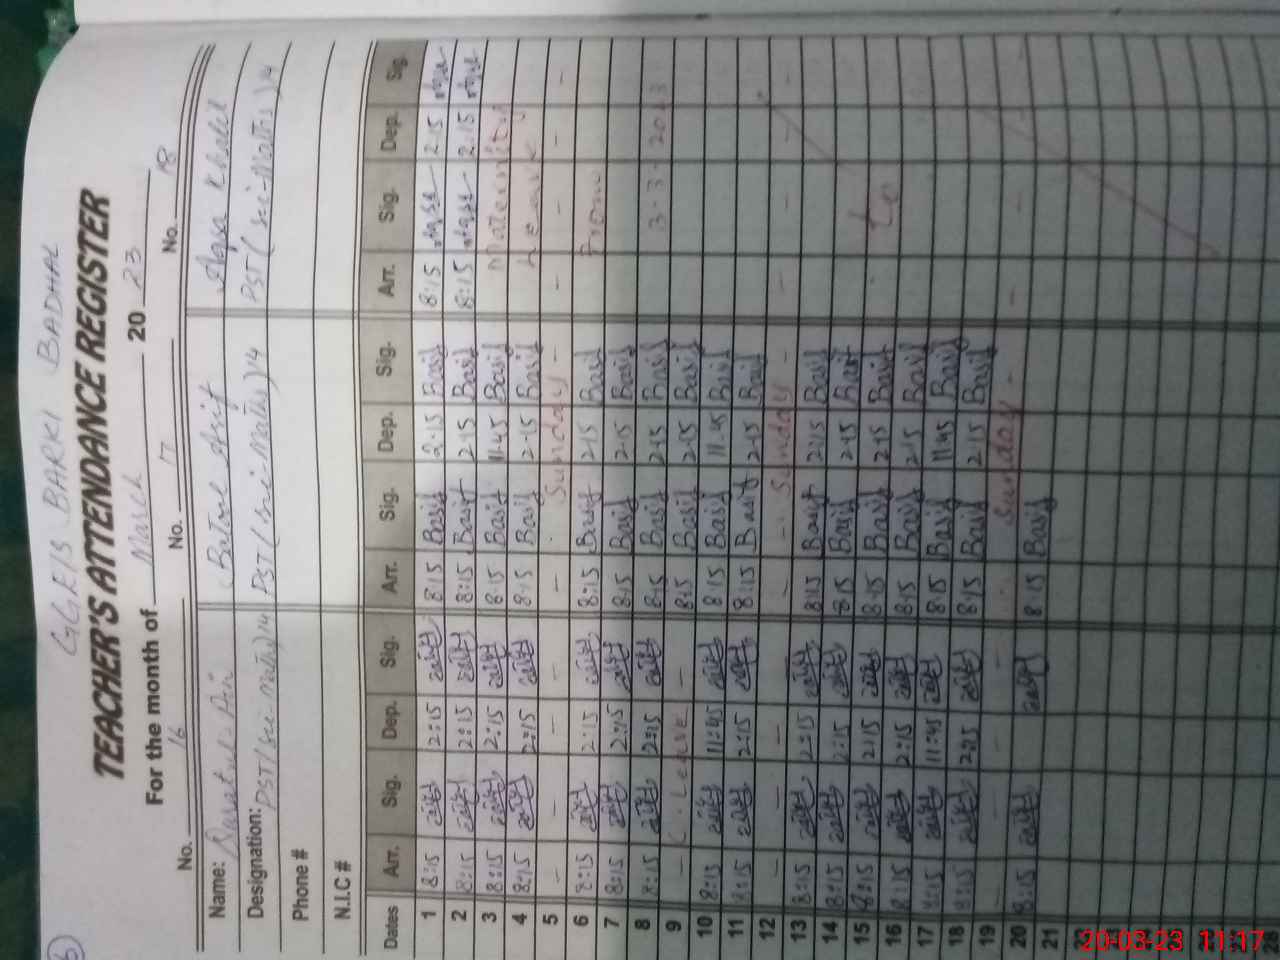 GGES BARKI BADHAL
TEACHER'S ATTENDANCE REGISTER
For the month of March 2023
No. 16 No. 17 No. 18
Name: Batool Asif Aqsa Khalil
Designation: PST (sci-Maths) 14 PST (sci-Maths) 14 PST (sci-Maths) 14
Phone #
N.I.C #
Dates Arr. Sig. Dep. Sig. Arr. Sig. Dep. Sig. Arr. Sig. Dep. Sig.
1 8:15 2:15 8:15 Basif 2:15 Basif 8:15 Aqsa 2:15 Aqsa
2 8:15 2:15 8:15 Basif 2:15 Basif 8:15 Aqsa 2:15 Aqsa
3 8:15 2:15 8:15 Basif 11:45 Basif Maternity
4 8:15 2:15 8:15 Basif 2:15 Basif Leave
5 — — — — — Sunday — — — — —
6 8:15 2:15 8:15 Basif 2:15 Basif From
7 8:15 2:15 8:15 Basif 2:15 Basif
8 8:15 2:15 8:15 Basif 2:15 Basif 3-3-2023
9 — C. Leave — 8:15 Basif 2:15 Basif
10 8:15 11:45 8:15 Basif 11:45 Basif
11 8:15 2:15 8:15 Basif 2:15 Basif
12 — — — — — Sunday — — — — —
13 8:15 2:15 8:15 Basif 2:15 Basif
14 8:15 2:15 8:15 Basif 2:15 Basif
15 8:15 2:15 8:15 Basif 2:15 Basif to
16 8:15 2:15 8:15 Basif 2:15 Basif
17 8:15 11:45 8:15 Basif 11:45 Basif
18 8:15 2:15 8:15 Basif 2:15 Basif
19 — — Sunday — — —
20 8:15 8:15 Basif
21
22
23
24
25
26
27
28
20-03-23 11:17